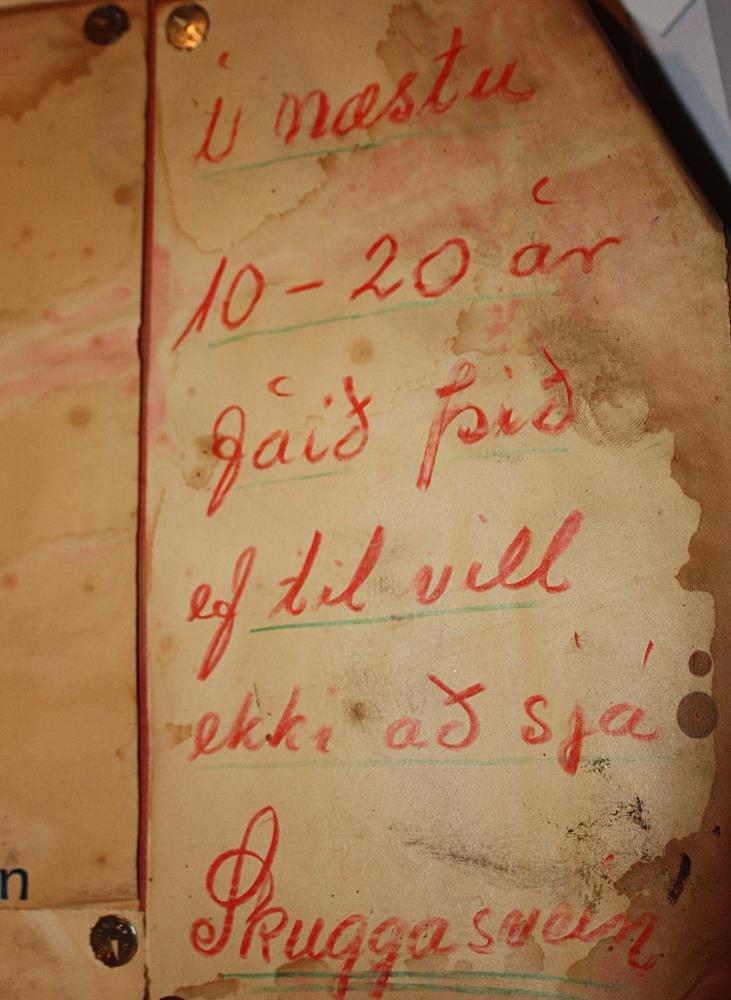 í næstu
10 - 20 ár
fáið þið
ef til vill
ekki að sjá
Skuggasvein
n